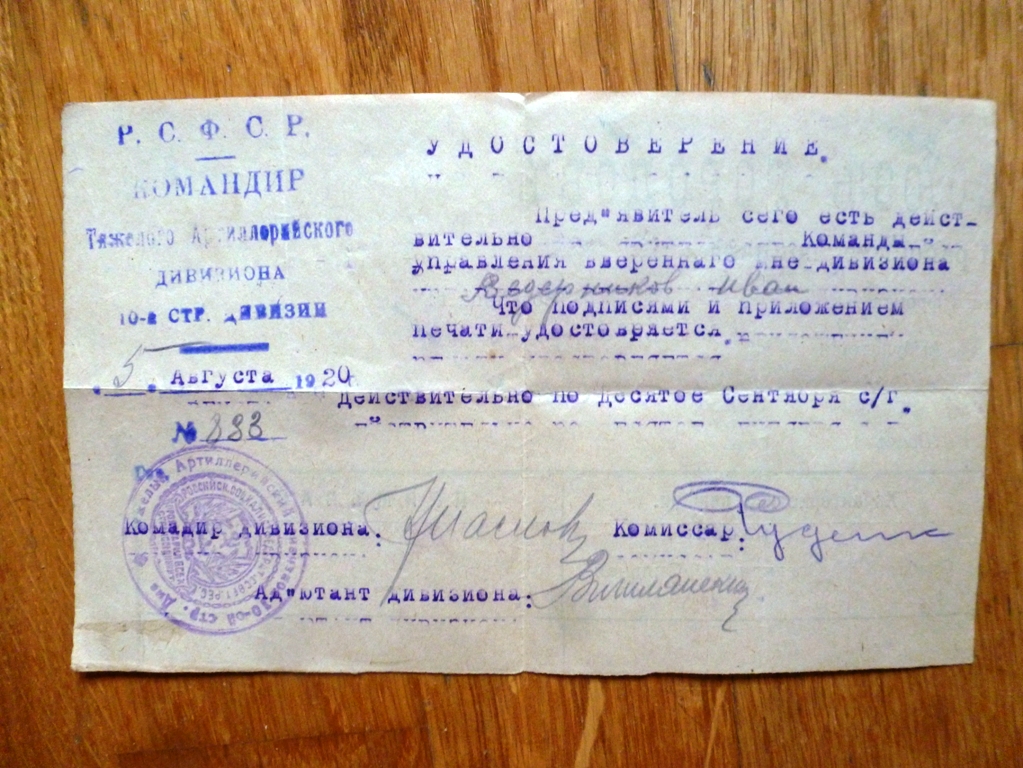 Р. С. Ф. С. Р.
КОМАНДИР
Тяжелого Артиллерийского
ДИВИЗИОНА
10-й СТР. ДИВИЗИИ
"5" Августа 1920
№ 883
УДОСТОВЕРЕНИЕ.
Пред"явитель сего есть дейст-
вительно Команды
управления вверенного мне дивизиона
Ведерников Иван
Что подписями и приложением
печати удостовряется.
Действительно по Десятое Сентября с/г.
Комадир дивизиона:
Комиссар:
Ад"ютант дивизиона:
Тяжелый Артиллерийский
10-ой стр. Див